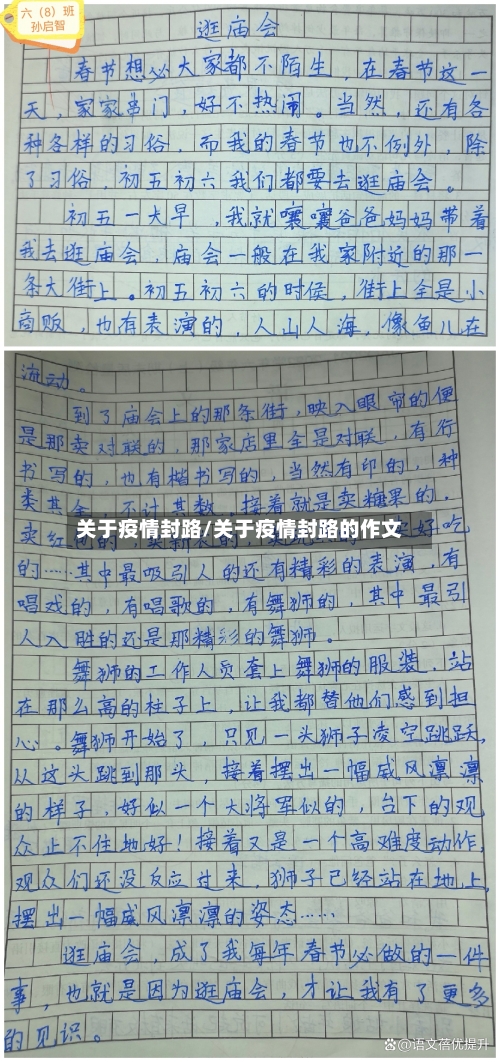 六（8）班
孙启智
逛庙会
春节想必大家都不陌生，在春节这一
天，家家串门，好不热闹。当然，还有各
种各样的习俗，而我的春节也不例外，除
了习俗，初五初六我们都要去逛庙会。
初五一大早，我就嚷嚷爸爸妈妈带着
我去逛庙会，庙会一般在我家附近的那一
条大街上。初五初六的时候，街上全是小
商贩，也有表演的，人山人海，像鱼儿在
流动。
到了庙会上的那条街，映入眼帘的便
是那卖对联的，那家店里全是对联，有行
书写的，也有楷书写的，当然有印的，种
类其全，不计其数，接着就是卖糖果的，
关于疫情封路/关于疫情封路的作文
卖红 好吃
的……其中最吸引人的还有精彩的表演，有
唱戏的，有唱歌的，有舞狮的，其中最引
人入胜的还是那精彩的舞狮。
舞狮的工作人员套上舞狮的服装，站
在那么高的柱子上，让我都替他们感到担
心。舞狮开始了，只见一头狮子凌空跳跃，
从这头跳到那头，接着摆出一幅威风凛凛
的样子，好似一个大将军似的，台下的观
众止不住地好！接着又是一个高难度动作，
观众们还没反应过来，狮子已经站在地上，
摆出一幅威风凛凛的姿态……
逛庙会，成了我每年春节必做的一件
事，也就是因为逛庙会，才让我有了更多
的见识。
@语文蓓优提升